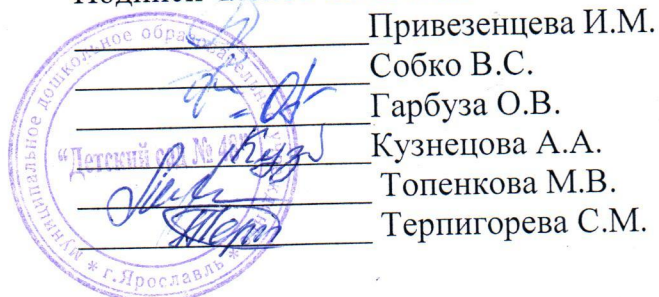 Привезенцева И.М.
Собко В.С.
Гарбуза О.В.
Кузнецова А.А.
Топенкова М.В.
Терпигорева С.М.
муниципальное дошкольное образовательное
"Детский сад №
* г.Ярославль *